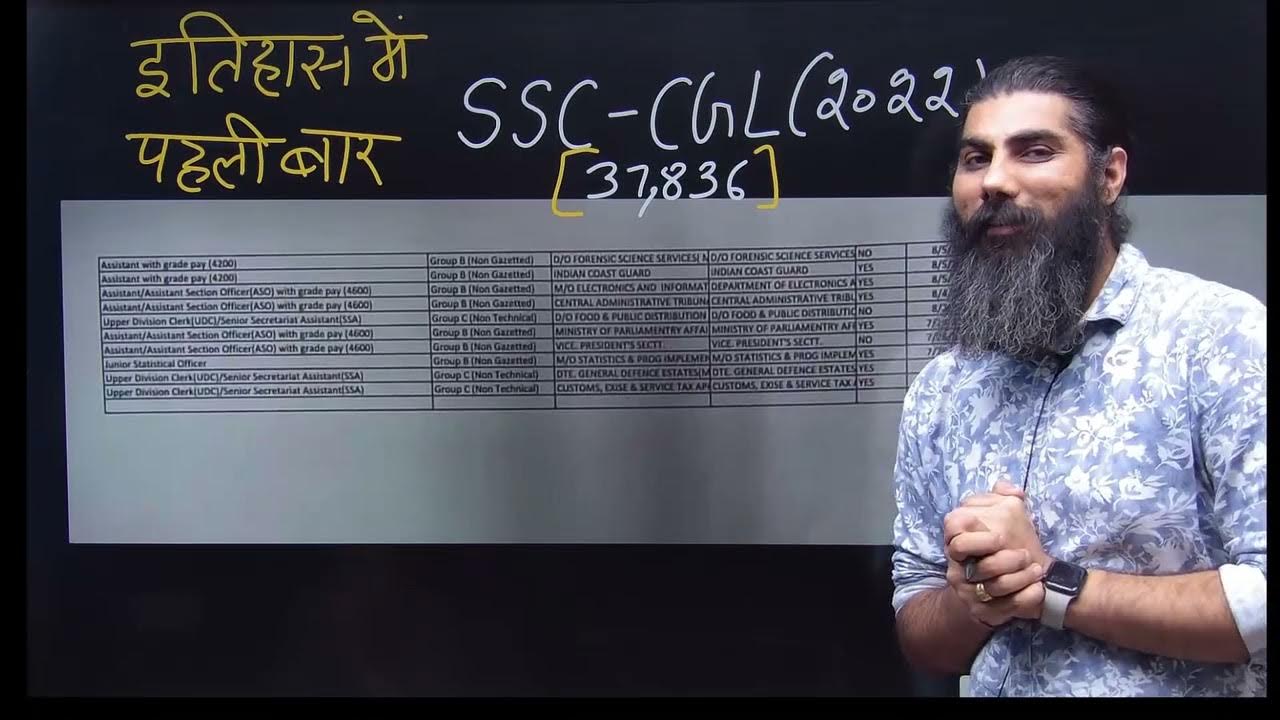 इतिहास में
पहली बार
SSC-CGL(2022)
[37,836]
Assistant with grade pay (4200) Group B (Non Gazetted) D/O FORENSIC SCIENCE SERVICES( D/O FORENSIC SCIENCE SERVICES NO
Assistant with grade pay (4200) Group B (Non Gazetted) INDIAN COAST GUARD INDIAN COAST GUARD YES
Assistant/Assistant Section Officer(ASO) with grade pay (4600) Group B (Non Gazetted) M/O ELECTRONICS AND INFORMAT DEPARTMENT OF ELECTRONICS A YES
Assistant/Assistant Section Officer(ASO) with grade pay (4600) Group B (Non Gazetted) CENTRAL ADMINISTRATIVE TRIBUN CENTRAL ADMINISTRATIVE TRIBU YES
Upper Division Clerk(UDC)/Senior Secretariat Assistant(SSA) Group C (Non Technical) D/O FOOD & PUBLIC DISTRIBUTION D/O FOOD & PUBLIC DISTRIBUTIO NO
Assistant/Assistant Section Officer(ASO) with grade pay (4600) Group B (Non Gazetted) MINISTRY OF PARLIAMENTRY AFFAI MINISTRY OF PARLIAMENTRY AFF YES
Assistant/Assistant Section Officer(ASO) with grade pay (4600) Group B (Non Gazetted) VICE. PRESIDENT'S SECTT. VICE. PRESIDENT'S SECTT. NO
Junior Statistical Officer Group B (Non Gazetted) M/O STATISTICS & PROG IMPLEMEN M/O STATISTICS & PROG IMPLEM YES
Upper Division Clerk(UDC)/Senior Secretariat Assistant(SSA) Group C (Non Technical) DTE. GENERAL DEFENCE ESTATES(M DTE. GENERAL DEFENCE ESTATES YES
Upper Division Clerk(UDC)/Senior Secretariat Assistant(SSA) Group C (Non Technical) CUSTOMS, EXISE & SERVICE TAX AP CUSTOMS, EXISE & SERVICE TAX A YES